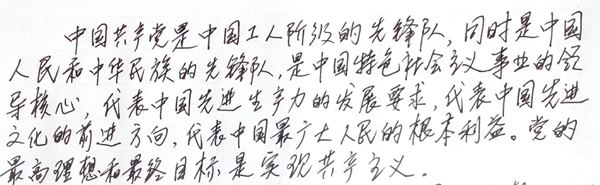 中国共产党是中国工人阶级的先锋队，同时是中国
人民和中华民族的先锋队，是中国特色社会主义事业的领
导核心，代表中国先进生产力的发展要求，代表中国先进
文化的前进方向，代表中国最广大人民的根本利益。党的
最高理想和最终目标是实现共产主义。